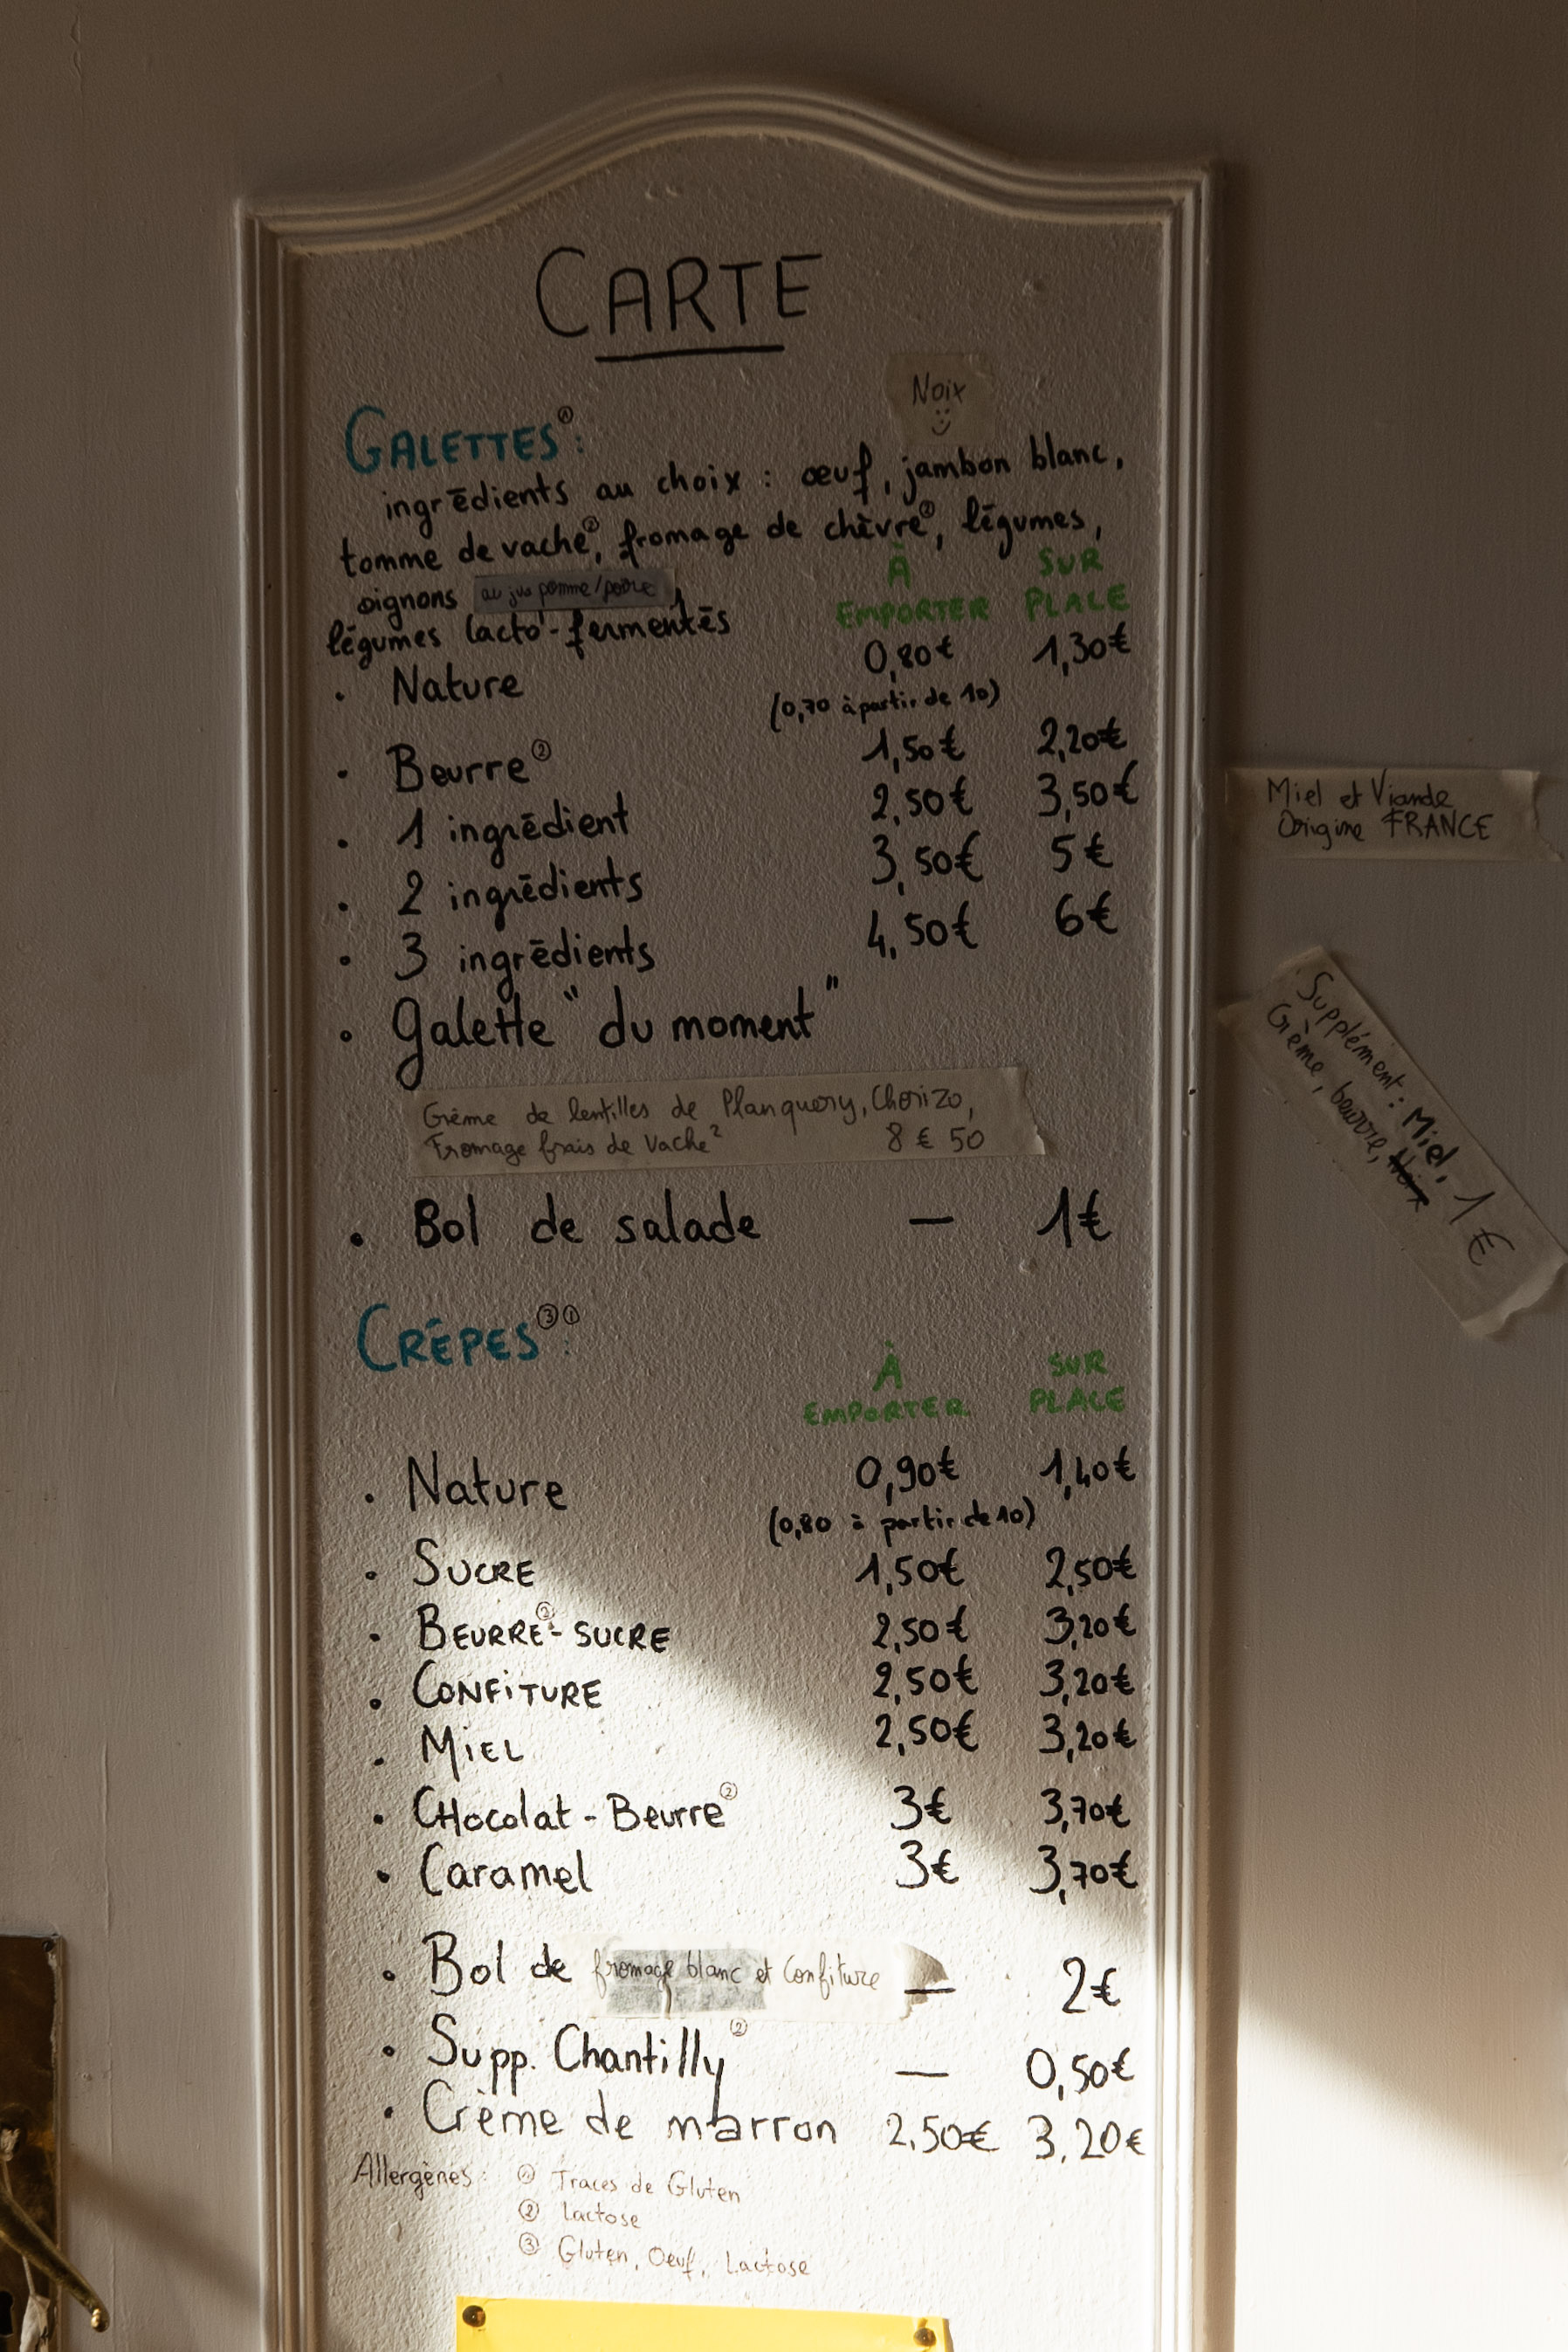 CARTE
Noix
GALETTES①:
ingrédients au choix : œuf, jambon blanc,
tomme de vache②, fromage de chèvre②, légumes,
oignons au jus pomme/poire,
légumes lacto-fermentés
À EMPORTER SUR PLACE
• Nature 0,80€ 1,30€
(0,70 à partir de 10)
• Beurre② 1,50€ 2,20€
• 1 ingrédient 2,50€ 3,50€
• 2 ingrédients 3,50€ 5€
• 3 ingrédients 4,50€ 6€
• Galette "du moment"
Crème de lentilles de Planquery, Chorizo,
Fromage frais de Vache² 8 € 50
• Bol de salade — 1€
CRÊPES③①:
À EMPORTER SUR PLACE
• Nature 0,90€ 1,40€
(0,80 à partir de 10)
• SUCRE 1,50€ 2,50€
• BEURRE②-SUCRE 2,50€ 3,20€
• CONFITURE 2,50€ 3,20€
• MIEL 2,50€ 3,20€
• CHocolat-Beurre② 3€ 3,70€
• Caramel 3€ 3,70€
• Bol de fromage blanc et Confiture — 2€
• Supp. Chantilly② — 0,50€
• Crème de marron 2,50€ 3,20€
Allergènes: ① Traces de Gluten
② Lactose
③ Gluten, Oeuf, Lactose
Miel et Viande
Origine FRANCE
Supplément : Miel, 1€
Crème, beurre,